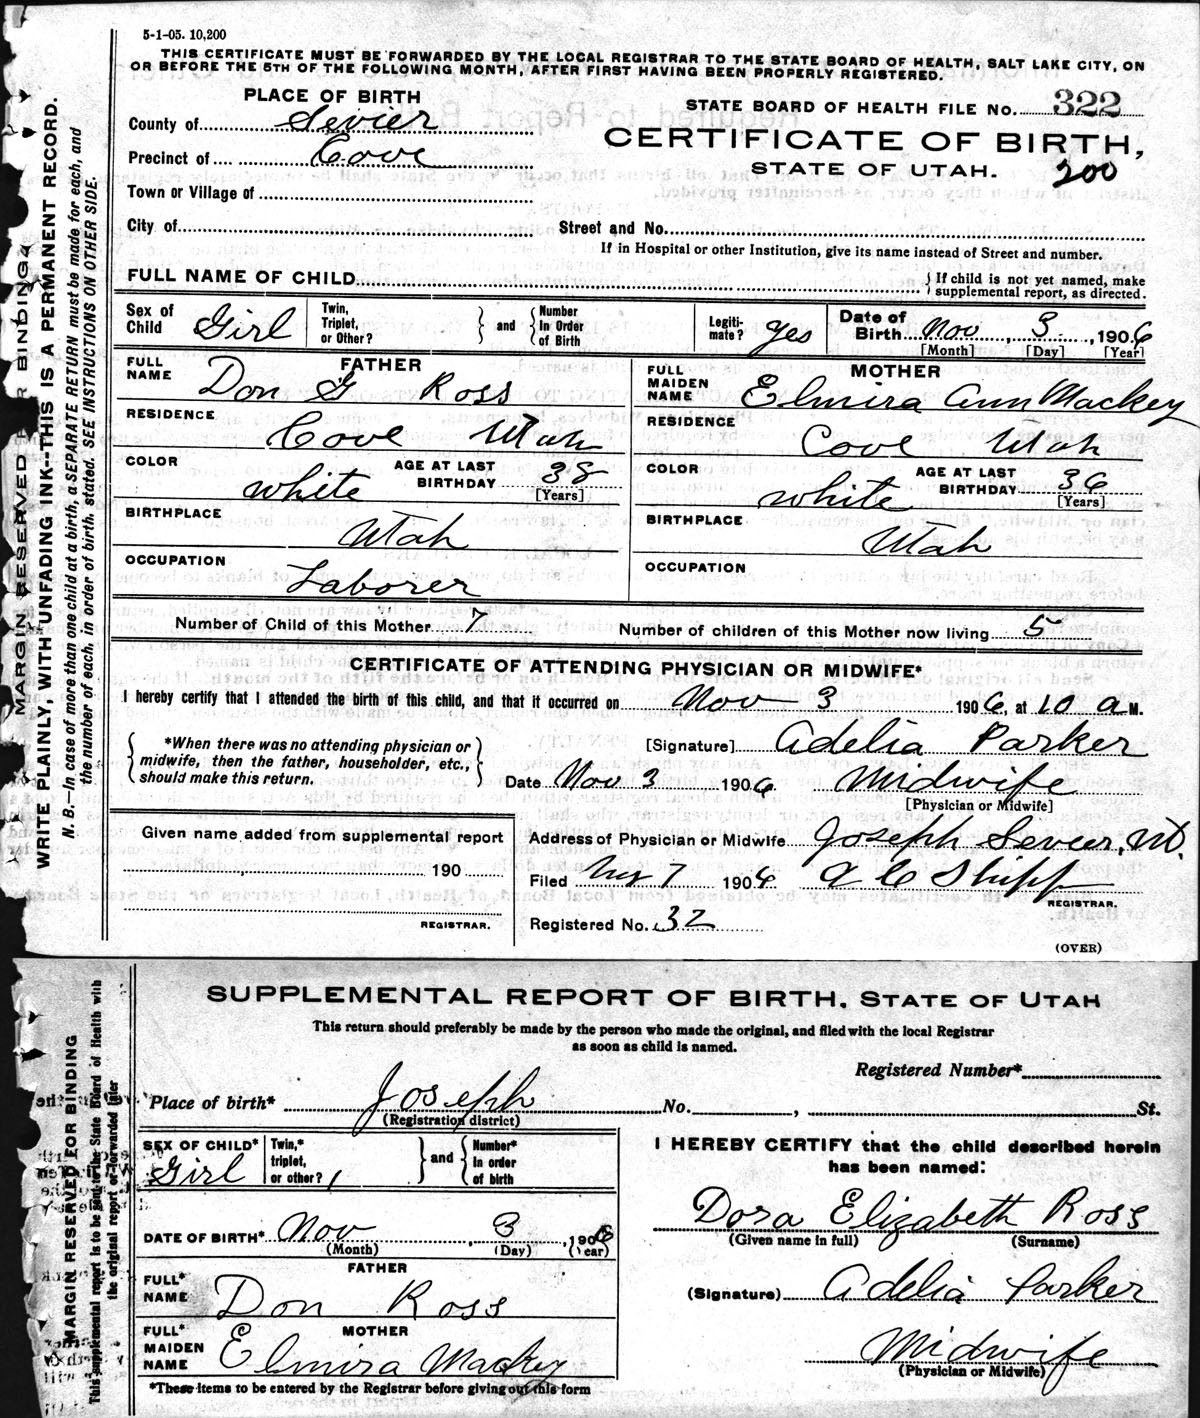 5-1-05. 10,200
THIS CERTIFICATE MUST BE FORWARDED BY THE LOCAL REGISTRAR TO THE STATE BOARD OF HEALTH, SALT LAKE CITY, ON
OR BEFORE THE 5TH OF THE FOLLOWING MONTH, AFTER FIRST HAVING BEEN PROPERLY REGISTERED.
PLACE OF BIRTH
STATE BOARD OF HEALTH FILE NO. 322
County of Sevier
CERTIFICATE OF BIRTH,
Precinct of Cove
STATE OF UTAH.
200
Town or Village of
City of
Street and No.
If in Hospital or other Institution, give its name instead of Street and number.
FULL NAME OF CHILD
{ If child is not yet named, make
supplemental report, as directed.
Sex of Child Girl
Twin, Triplet, or Other?
} and {
Number In Order of Birth
Legiti-mate? yes
Date of Birth Nov 3, 1906
[Month] [Day] [Year]
FATHER
FULL NAME Don G Ross
RESIDENCE Cove Utah
COLOR white
AGE AT LAST BIRTHDAY 38
[Years]
BIRTHPLACE Utah
OCCUPATION Laborer
MOTHER
FULL MAIDEN NAME Elmira Ann Mackey
RESIDENCE Cove Utah
COLOR white
AGE AT LAST BIRTHDAY 36
[Years]
BIRTHPLACE Utah
OCCUPATION
Number of Child of this Mother 7
Number of children of this Mother now living 5
CERTIFICATE OF ATTENDING PHYSICIAN OR MIDWIFE*
I hereby certify that I attended the birth of this child, and that it occurred on Nov 3 1906, at 10 a M.
{ *When there was no attending physician or
midwife, then the father, householder, etc.,
should make this return. }
[Signature] Adelia Parker
Date Nov 3 1906 Midwife
[Physician or Midwife]
Given name added from supplemental report
190
REGISTRAR.
Address of Physician or Midwife Joseph Sevier,
Filed 7 1906 Shipp
REGISTRAR.
Registered No. 32
(OVER)
MARGIN RESERVED FOR BINDING
WRITE PLAINLY, WITH UNFADING INK--THIS IS A PERMANENT RECORD.
N. B.—In case of more than one child at a birth, a SEPARATE RETURN must be made for each, and
the number of each, in order of birth, stated. SEE INSTRUCTIONS ON OTHER SIDE.
SUPPLEMENTAL REPORT OF BIRTH, STATE OF UTAH
This return should preferably be made by the person who made the original, and filed with the local Registrar
as soon as child is named.
Registered Number*
Place of birth* Joseph No. , St.
(Registration district)
SEX OF CHILD* Girl
Twin,* triplet, or other?
} and {
Number* In order of birth
DATE OF BIRTH* Nov , 3 , 1906
(Month) (Day) (Year)
FATHER
FULL* NAME Don Ross
MOTHER
FULL* MAIDEN NAME Elmira Mackey
*These items to be entered by the Registrar before giving out this form
I HEREBY CERTIFY that the child described herein
has been named:
Dora Elizabeth Ross
(Given name in full) (Surname)
(Signature) Adelia Parker
Midwife
(Physician or Midwife)
MARGIN RESERVED FOR BINDING
This supplemental report is to be sent to the State Board of Health with
the original report or forwarded later